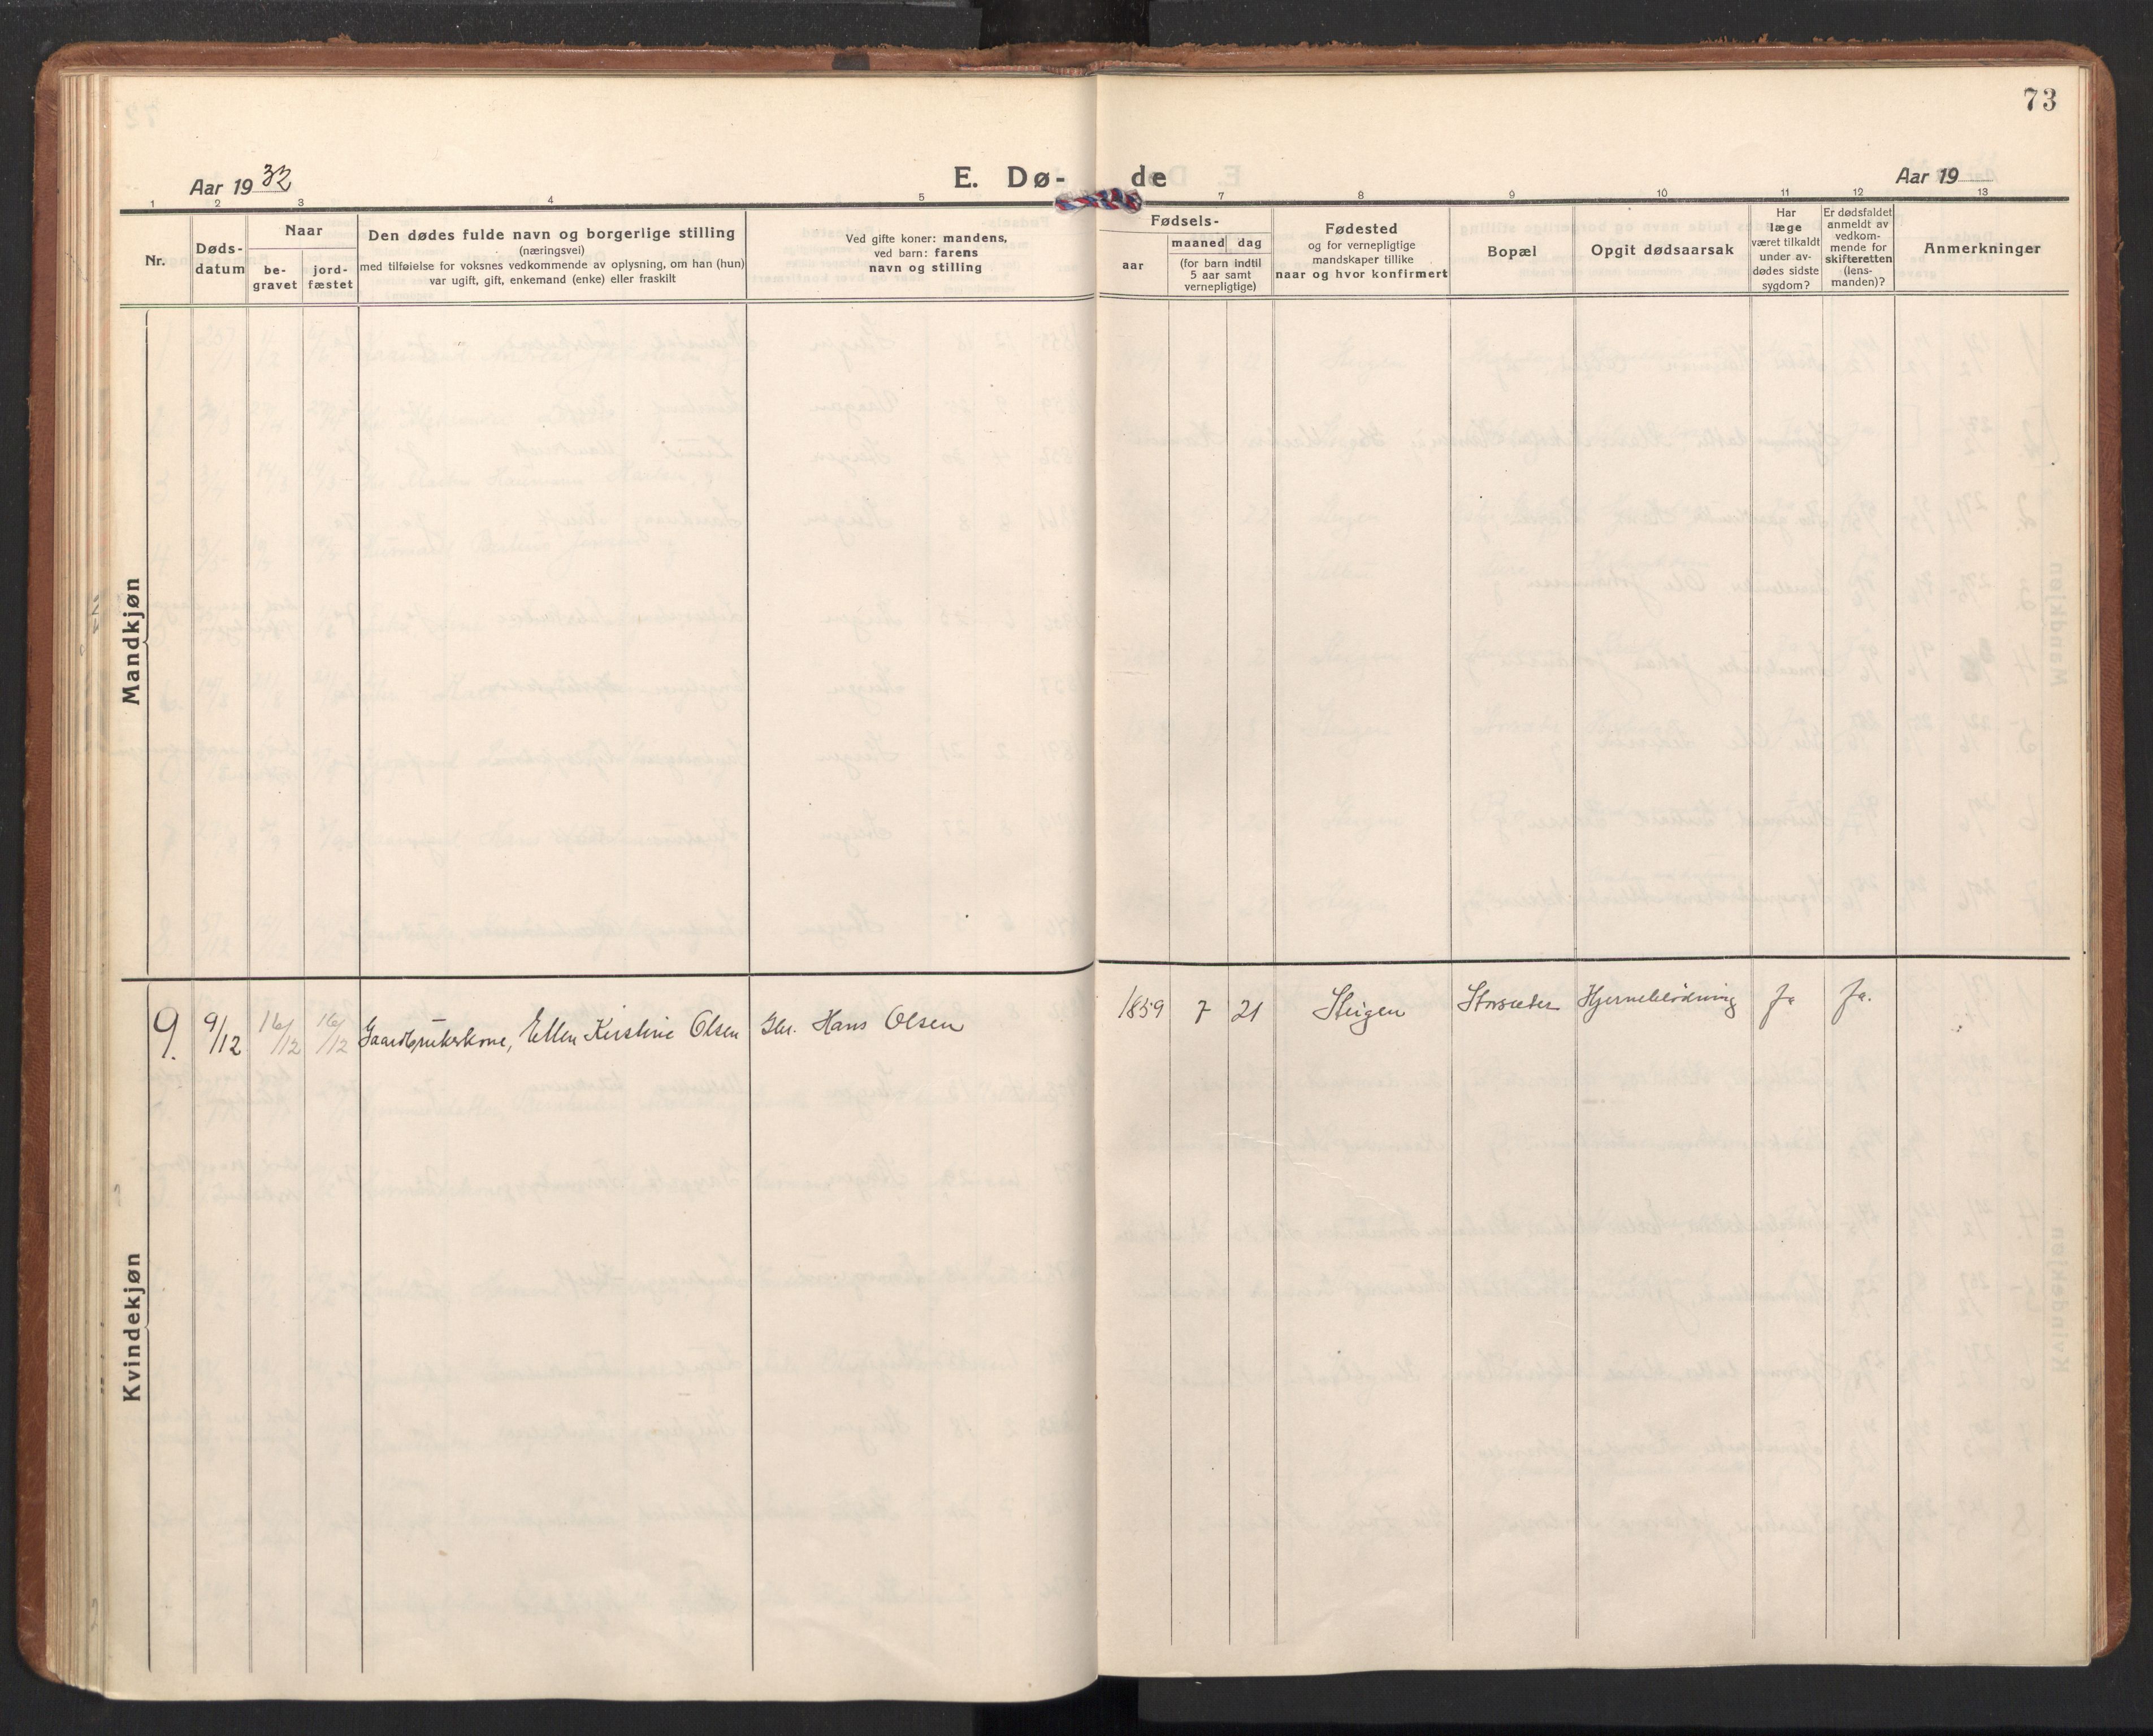 73
Aar 1932
E. Dø-
de
Aar 19
1 2 3 4 5 7 8 9 10 11 12 13
Nr.
Døds-
datum
Naar
be-
gravet
jord-
fæstet
Den dødes fulde navn og borgerlige stilling
(næringsvei)
med tilføielse for voksnes vedkommende av oplysning, om han (hun)
var ugift, gift, enkemand (enke) eller fraskilt
Ved gifte koner: mandens,
ved barn: farens
navn og stilling
Fødsels-
aar
maaned dag
(for barn indtil
5 aar samt
vernepligtige)
Fødested
og for vernepligtige
mandskaper tillike
naar og hvor konfirmert
Bopæl
Opgit dødsaarsak
Har
læge
været tilkaldt
under av-
dødes sidste
sygdom?
Er dødsfaldet
anmeldt av
vedkom-
mende for
skifteretten
(lens-
manden)?
Anmerkninger
Mandkjøn
Kvindekjøn
9. 9/12 16/12 16/12 Gaardbrukerkone, Ellen Kirstine Olsen Gbr. Hans Olsen 1859 7 21 Steigen Storsæter Hjerneblødning Ja Ja.